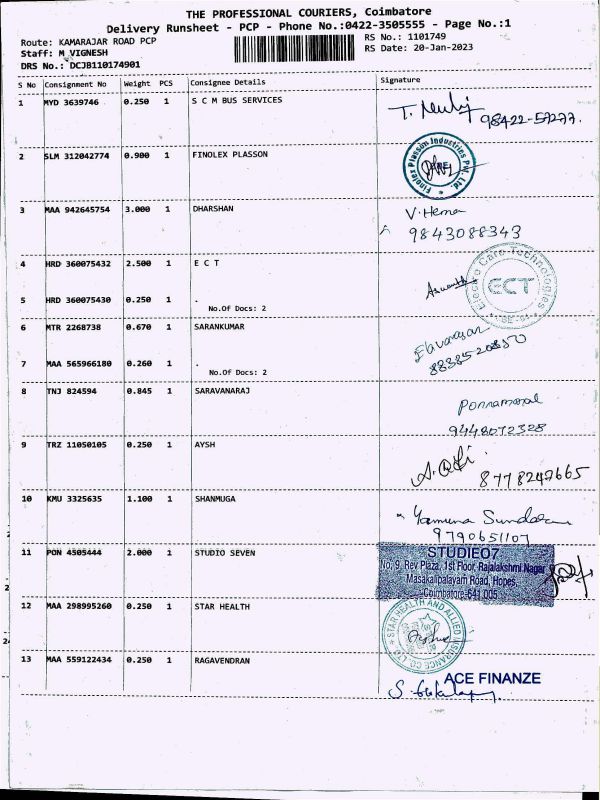 THE PROFESSIONAL COURIERS, Coimbatore
Delivery Runsheet - PCP - Phone No.:0422-3505555 - Page No.:1
Route: KAMARAJAR ROAD PCP
RS No.: 1101749
Staff: M VIGNESH
RS Date: 20-Jan-2023
DRS No.: DCJB110174901
S No Consignment No Weight PCS Consignee Details Signature
1 MYD 3639746 0.250 1 S C M BUS SERVICES
98422-57277.
2 SLM 312042774 0.900 1 FINOLEX PLASSON
Finolex Plasson Industries Pvt. Ltd.
3 MAA 942645754 3.000 1 DHARSHAN V. Hema
9843088343
4 HRD 360075432 2.500 1 E C T
Electro Care Technologies
ECT
5 HRD 360075430 0.250 1 .
No.Of Docs: 2
6 MTR 2268738 0.670 1 SARANKUMAR
Elavarasan
8838520850
7 MAA 565966180 0.260 1 .
No.Of Docs: 2
8 TNJ 824594 0.845 1 SARAVANARAJ
9448072328
9 TRZ 11050105 0.250 1 AYSH
8778247665
10 KMU 3325635 1.100 1 SHANMUGA
Yamuna Sundaram
9790651107
11 PON 4505444 2.000 1 STUDIO SEVEN
STUDIE07
No, 9, Rev Plaza, 1st Floor, Rajalakshmi Nagar
Masakalipalayam Road, Hopes,
Coimbatore-641 005
12 MAA 298995260 0.250 1 STAR HEALTH
STAR HEALTH AND ALLIED INSURANCE CO. LTD
13 MAA 559122434 0.250 1 RAGAVENDRAN
ACE FINANZE